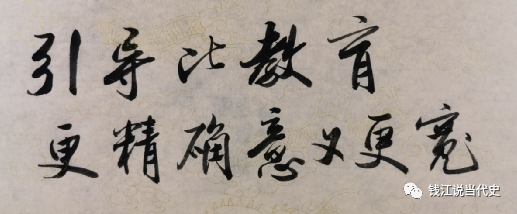 引导比教育
更精确意义更宽
钱江说当代史